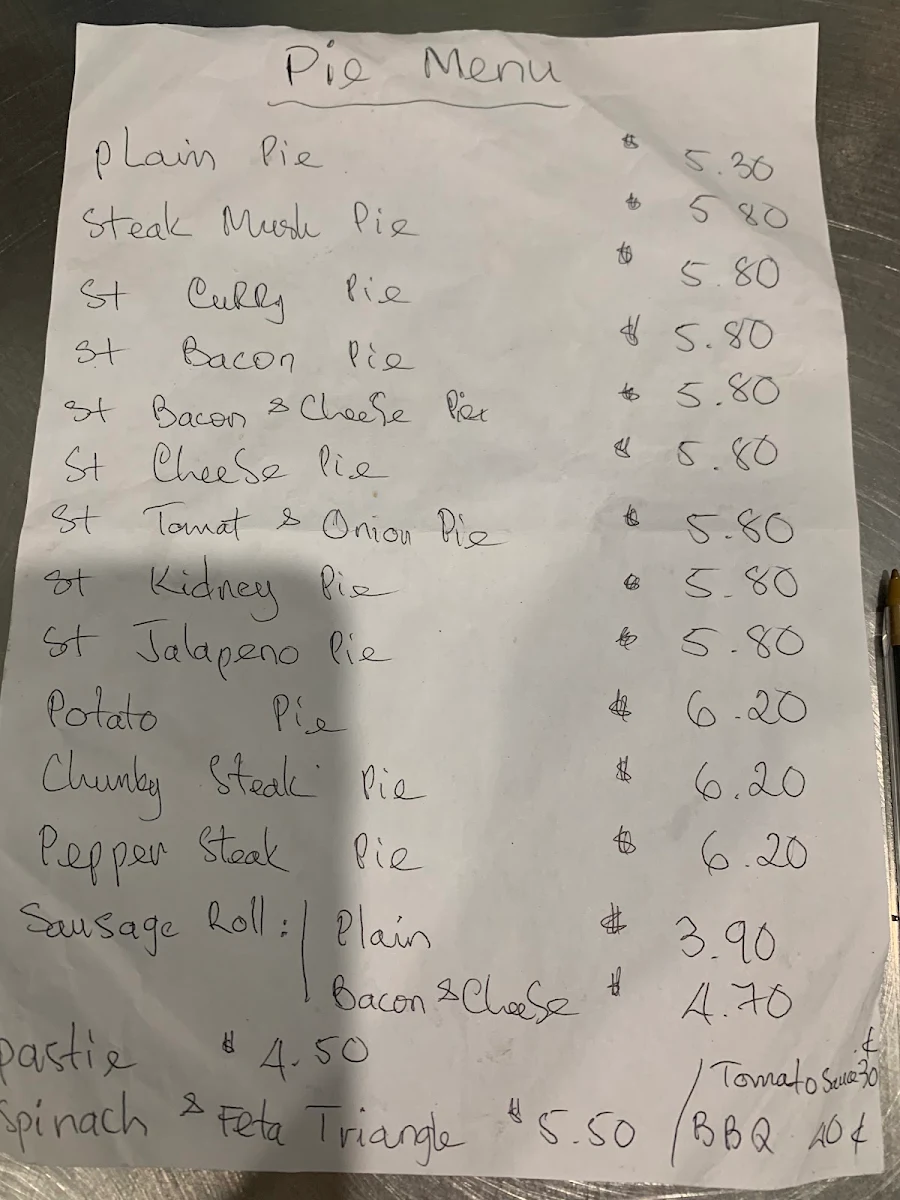 Pie Menu
Plain Pie $ 5.30
Steak Mush Pie $ 5 80
St Curry Pie $ 5.80
St Bacon Pie $ 5.80
St Bacon & Cheese Pie $ 5.80
St Cheese Pie $ 5.80
St Tomat & Onion Pie $ 5.80
St Kidney Pie $ 5.80
St Jalapeno Pie $ 5.80
Potato Pie $ 6.20
Chunky Steak Pie $ 6.20
Pepper Steak Pie $ 6.20
Sausage Roll: Plain $ 3.90
Bacon & Cheese $ 4.70
pastie $ 4.50
Tomato Sauce 30 ¢
Spinach & Feta Triangle $ 5.50
BBQ 40 ¢